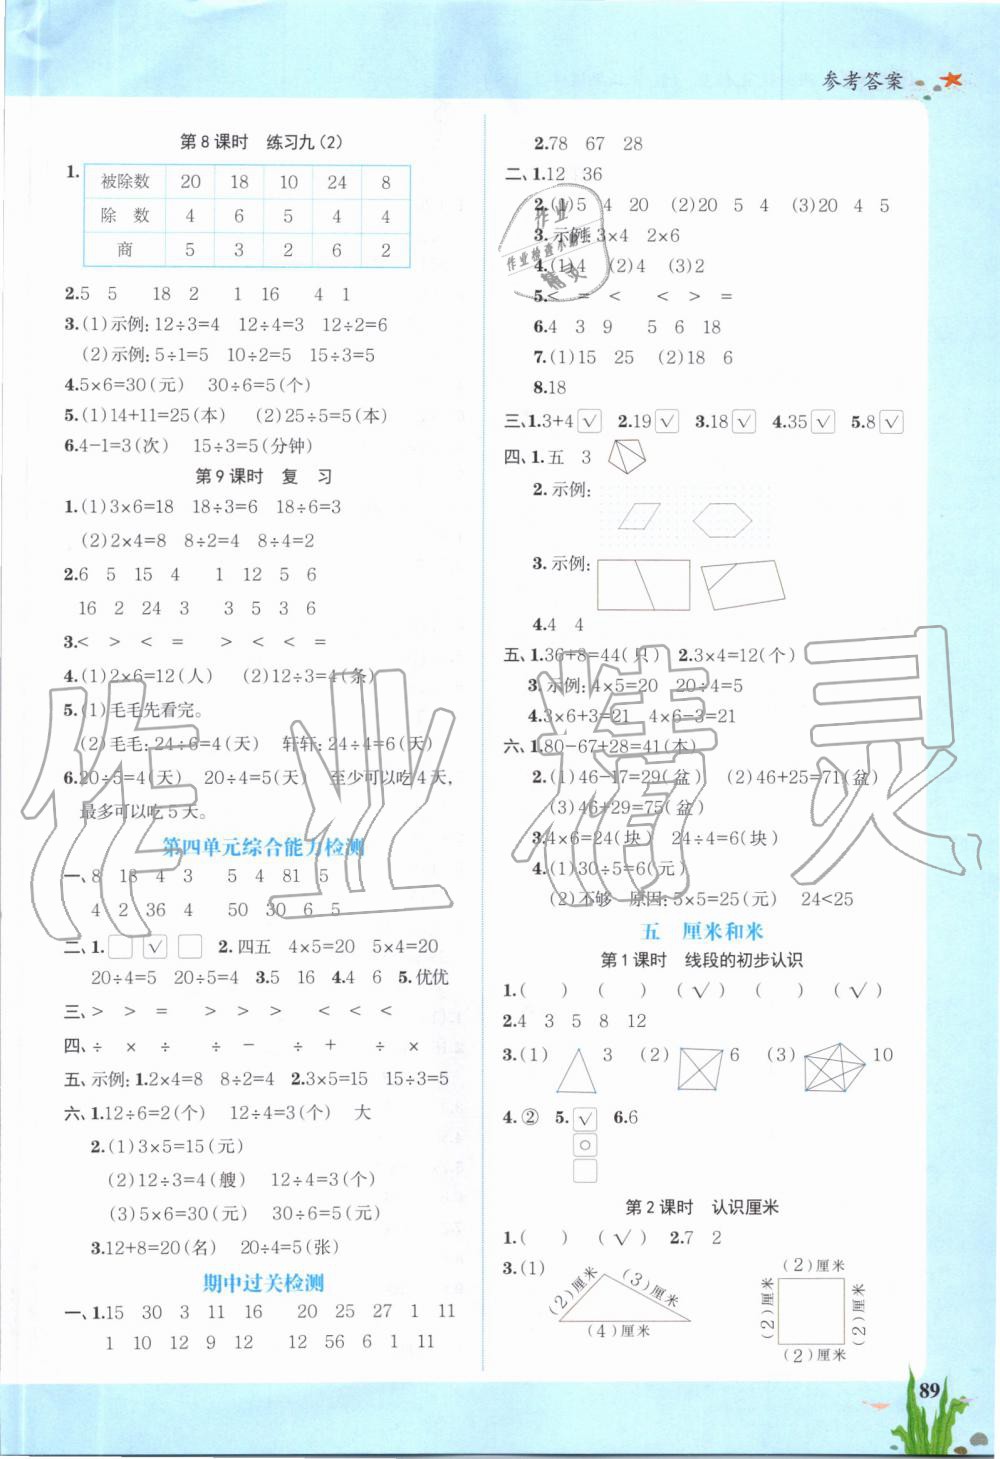 参考答案
第8课时 练习九(2)
1.
被除数 20 18 10 24 8
除 数 4 6 5 4 4
商 5 3 2 6 2
2.5 5 18 2 1 16 4 1
3.(1)示例:12÷3=4 12÷4=3 12÷2=6
(2)示例:5÷1=5 10÷2=5 15÷3=5
4.5×6=30(元) 30÷6=5(个)
5.(1)14+11=25(本) (2)25÷5=5(本)
6.4-1=3(次) 15÷3=5(分钟)
第9课时 复 习
1.(1)3×6=18 18÷3=6 18÷6=3
(2)2×4=8 8÷2=4 8÷4=2
2.6 5 15 4 1 12 5 6
16 2 24 3 3 5 3 6
3.< > < = > < < =
4.(1)2×6=12(人) (2)12÷3=4(条)
5.(1)毛毛先看完。
(2)毛毛:24÷6=4(天) 轩轩:24÷4=6(天)
6.20÷5=4(天) 20÷4=5(天) 至少可以吃4天,
最多可以吃5天。
第四单元综合能力检测
一、8 18 4 3 5 4 81 5
4 2 36 4 50 30 6 5
二、1. √ 2.四五 4×5=20 5×4=20
20÷4=5 20÷5=4 3.5 16 4.4 6 5.优优
三、> > = > > > < < <
四、÷ × ÷ ÷ - ÷ + ÷ ×
五、示例:1.2×4=8 8÷2=4 2.3×5=15 15÷3=5
六、1.12÷6=2(个) 12÷4=3(个) 大
2.(1)3×5=15(元)
(2)12÷3=4(艘) 12÷4=3(个)
(3)5×6=30(元) 30÷6=5(元)
3.12+8=20(名) 20÷4=5(张)
期中过关检测
一、1.15 30 3 11 16 20 25 27 1 11
1 10 12 9 12 12 56 6 1 11
2.78 67 28
二、1.12 36
2.(1)5 4 20 (2)20 5 4 (3)20 4 5
3.示例:3×4 2×6
4.(1)4 (2)4 (3)2
5.< = < < > =
6.4 3 9 5 6 18
7.(1)15 25 (2)18 6
8.18
三、1.3+4 √ 2.19 √ 3.18 √ 4.35 √ 5.8 √
四、1.五 3
2.示例:
3.示例:
4.4 4
五、1.36+8=44(只) 2.3×4=12(个)
3.示例:4×5=20 20÷4=5
4.3×6+3=21 4×6-3=21
六、1.80-67+28=41(本)
2.(1)46-17=29(盆) (2)46+25=71(盆)
(3)46+29=75(盆)
3.4×6=24(块) 24÷4=6(块)
4.(1)30÷5=6(元)
(2)不够 原因:5×5=25(元) 24<25
五 厘米和米
第1课时 线段的初步认识
1.( ) ( ) (√) ( ) (√)
2.4 3 5 8 12
3.(1) 3 (2) 6 (3) 10
4.② 5. √ 6.6
○
第2课时 认识厘米
1.( ) (√) 2.7 2
3.(1) (2)厘米 (3)厘米 (4)厘米
(2)厘米 (2)厘米 (2)厘米 (2)厘米
89
作业精灵
作业
作业检查小助手
精灵